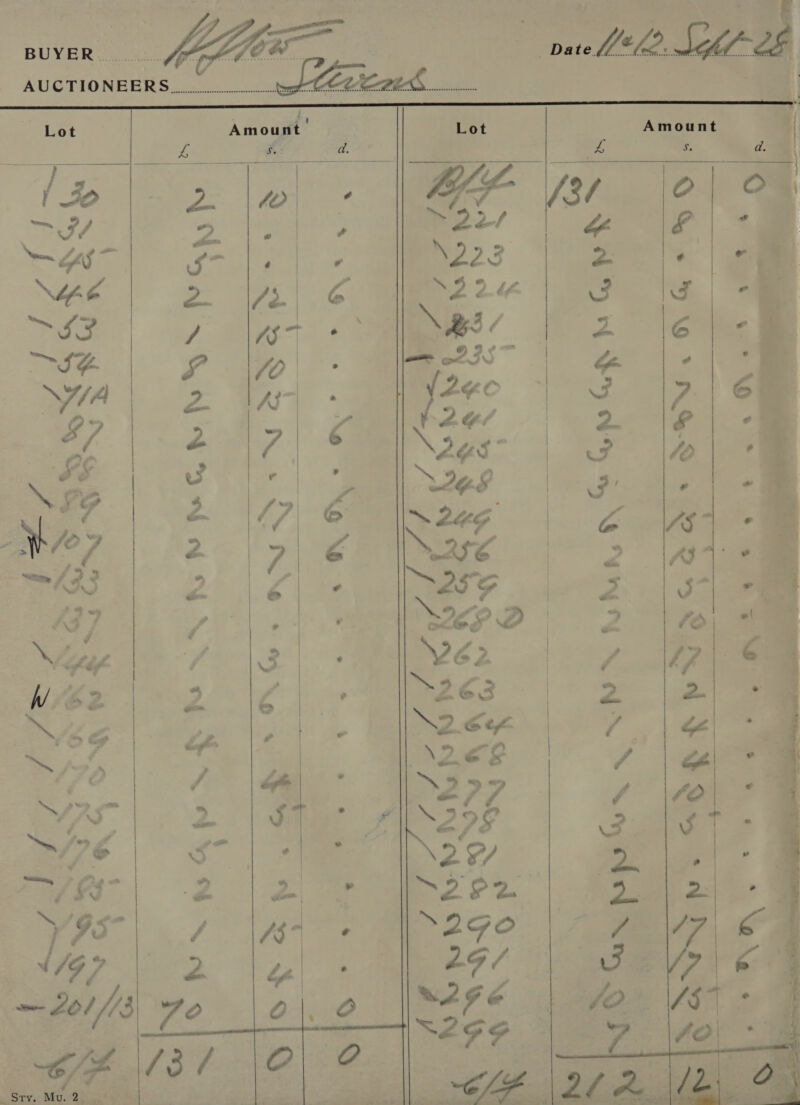 BUYER
AUCTIONEERS Stevens
Date 11 & 12. Sept 28
Lot Amount £ s. d.
130 2 10 "
31 2 " "
45 5 " "
46 2 12 6
53 1 15 "
54 8 10 "
71A 2 15 "
87 2 7 6
88 3 " "
89 2 17 6
107 2 7 6
133 2 6 "
137 1 " "
144 1 3 "
162 2 6 "
169 4 " "
170 1 4 "
175 2 5 "
176 5 " "
185 2 2 "
195 1 15 "
197 2 4 "
201/13 70 0 0
C/F 131 0 0
Lot Amount £ s. d.
B/F 131 0 0
221 4 8 "
223 2 " "
224 3 3 "
231 2 6 "
235 4 " "
240 3 7 6
241 2 8 "
245 3 10 "
248 3 " "
249 6 15 "
256 2 15 "
259 2 5 "
2 10 "
262 1 17 6
263 2 2 "
264 1 4 "
268 1 4 "
277 1 10 "
278 3 5 "
281 2 " "
282 2 2 "
290 1 17 6
291 3 17 6
296 10 15 "
299 7 10 "
C/F 212 12 0
Sry. Mu. 2